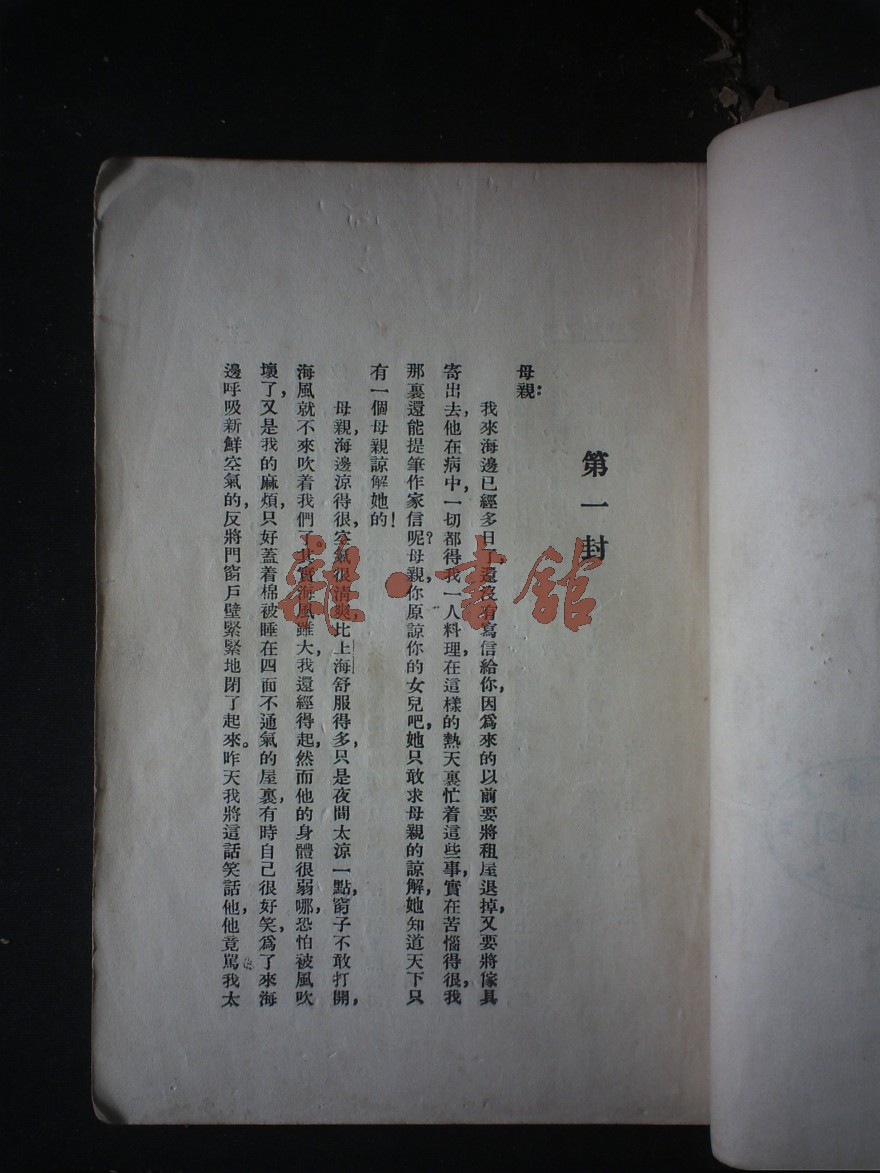 第一封
母親：
我來海邊已經多日了，還沒有寫信給你，因爲來的以前要將租屋退掉，又要將傢具
寄出去，他在病中，一切都得我一人料理，在這樣的熱天裏忙着這些事，實在苦惱得很，我
那裏還能提筆作家信呢？母親，你原諒你的女兒吧，她只敢求母親的諒解，她知道天下只
有一個母親諒解她的！
母親，海邊涼得很，空氣很清爽，比上海舒服得多，只是夜間太涼一點，窗子不敢打開，
海風就不來吹着我們了，其實海風雖大，我還經得起，然而他的身體很弱哪，恐怕被風吹
壞了，又是我的麻煩，只好蓋着棉被睡在四面不通氣的屋裏，有時自己很好笑，爲了來海
邊呼吸新鮮空氣的，反將門窗戶壁緊緊地閉了起來。昨天我將這話笑話他，他竟罵我太
書館